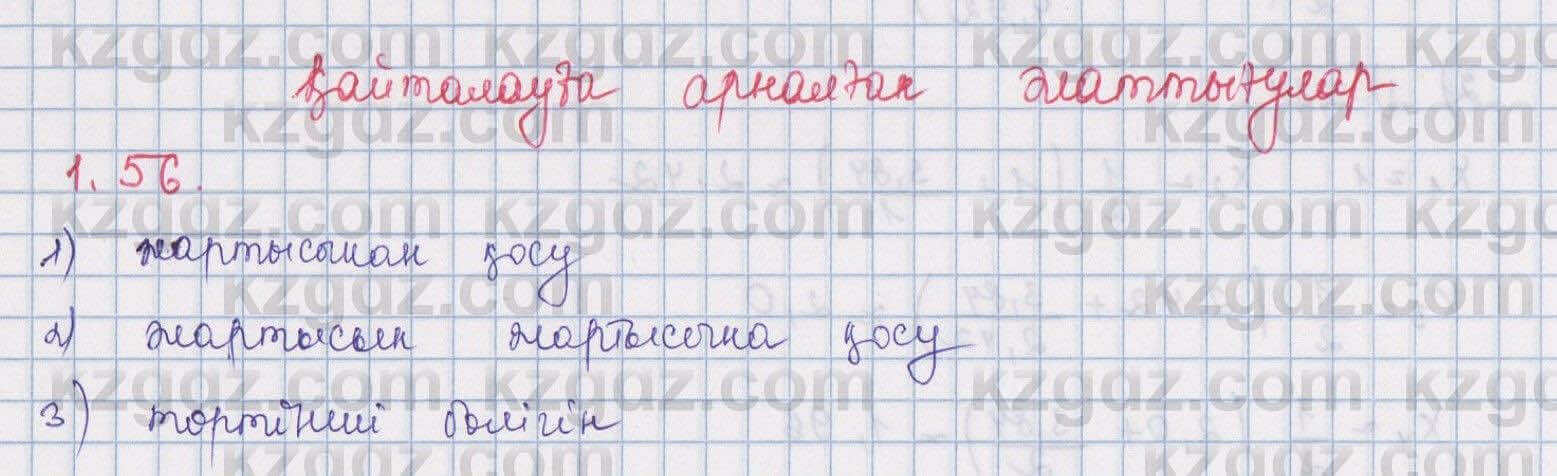 Қайталауға арналған жаттығулар
1.56.
1) жартысынан қосу
2) жартысын жартысына қосу
3) төртінші бөлігін
kzgdz.com